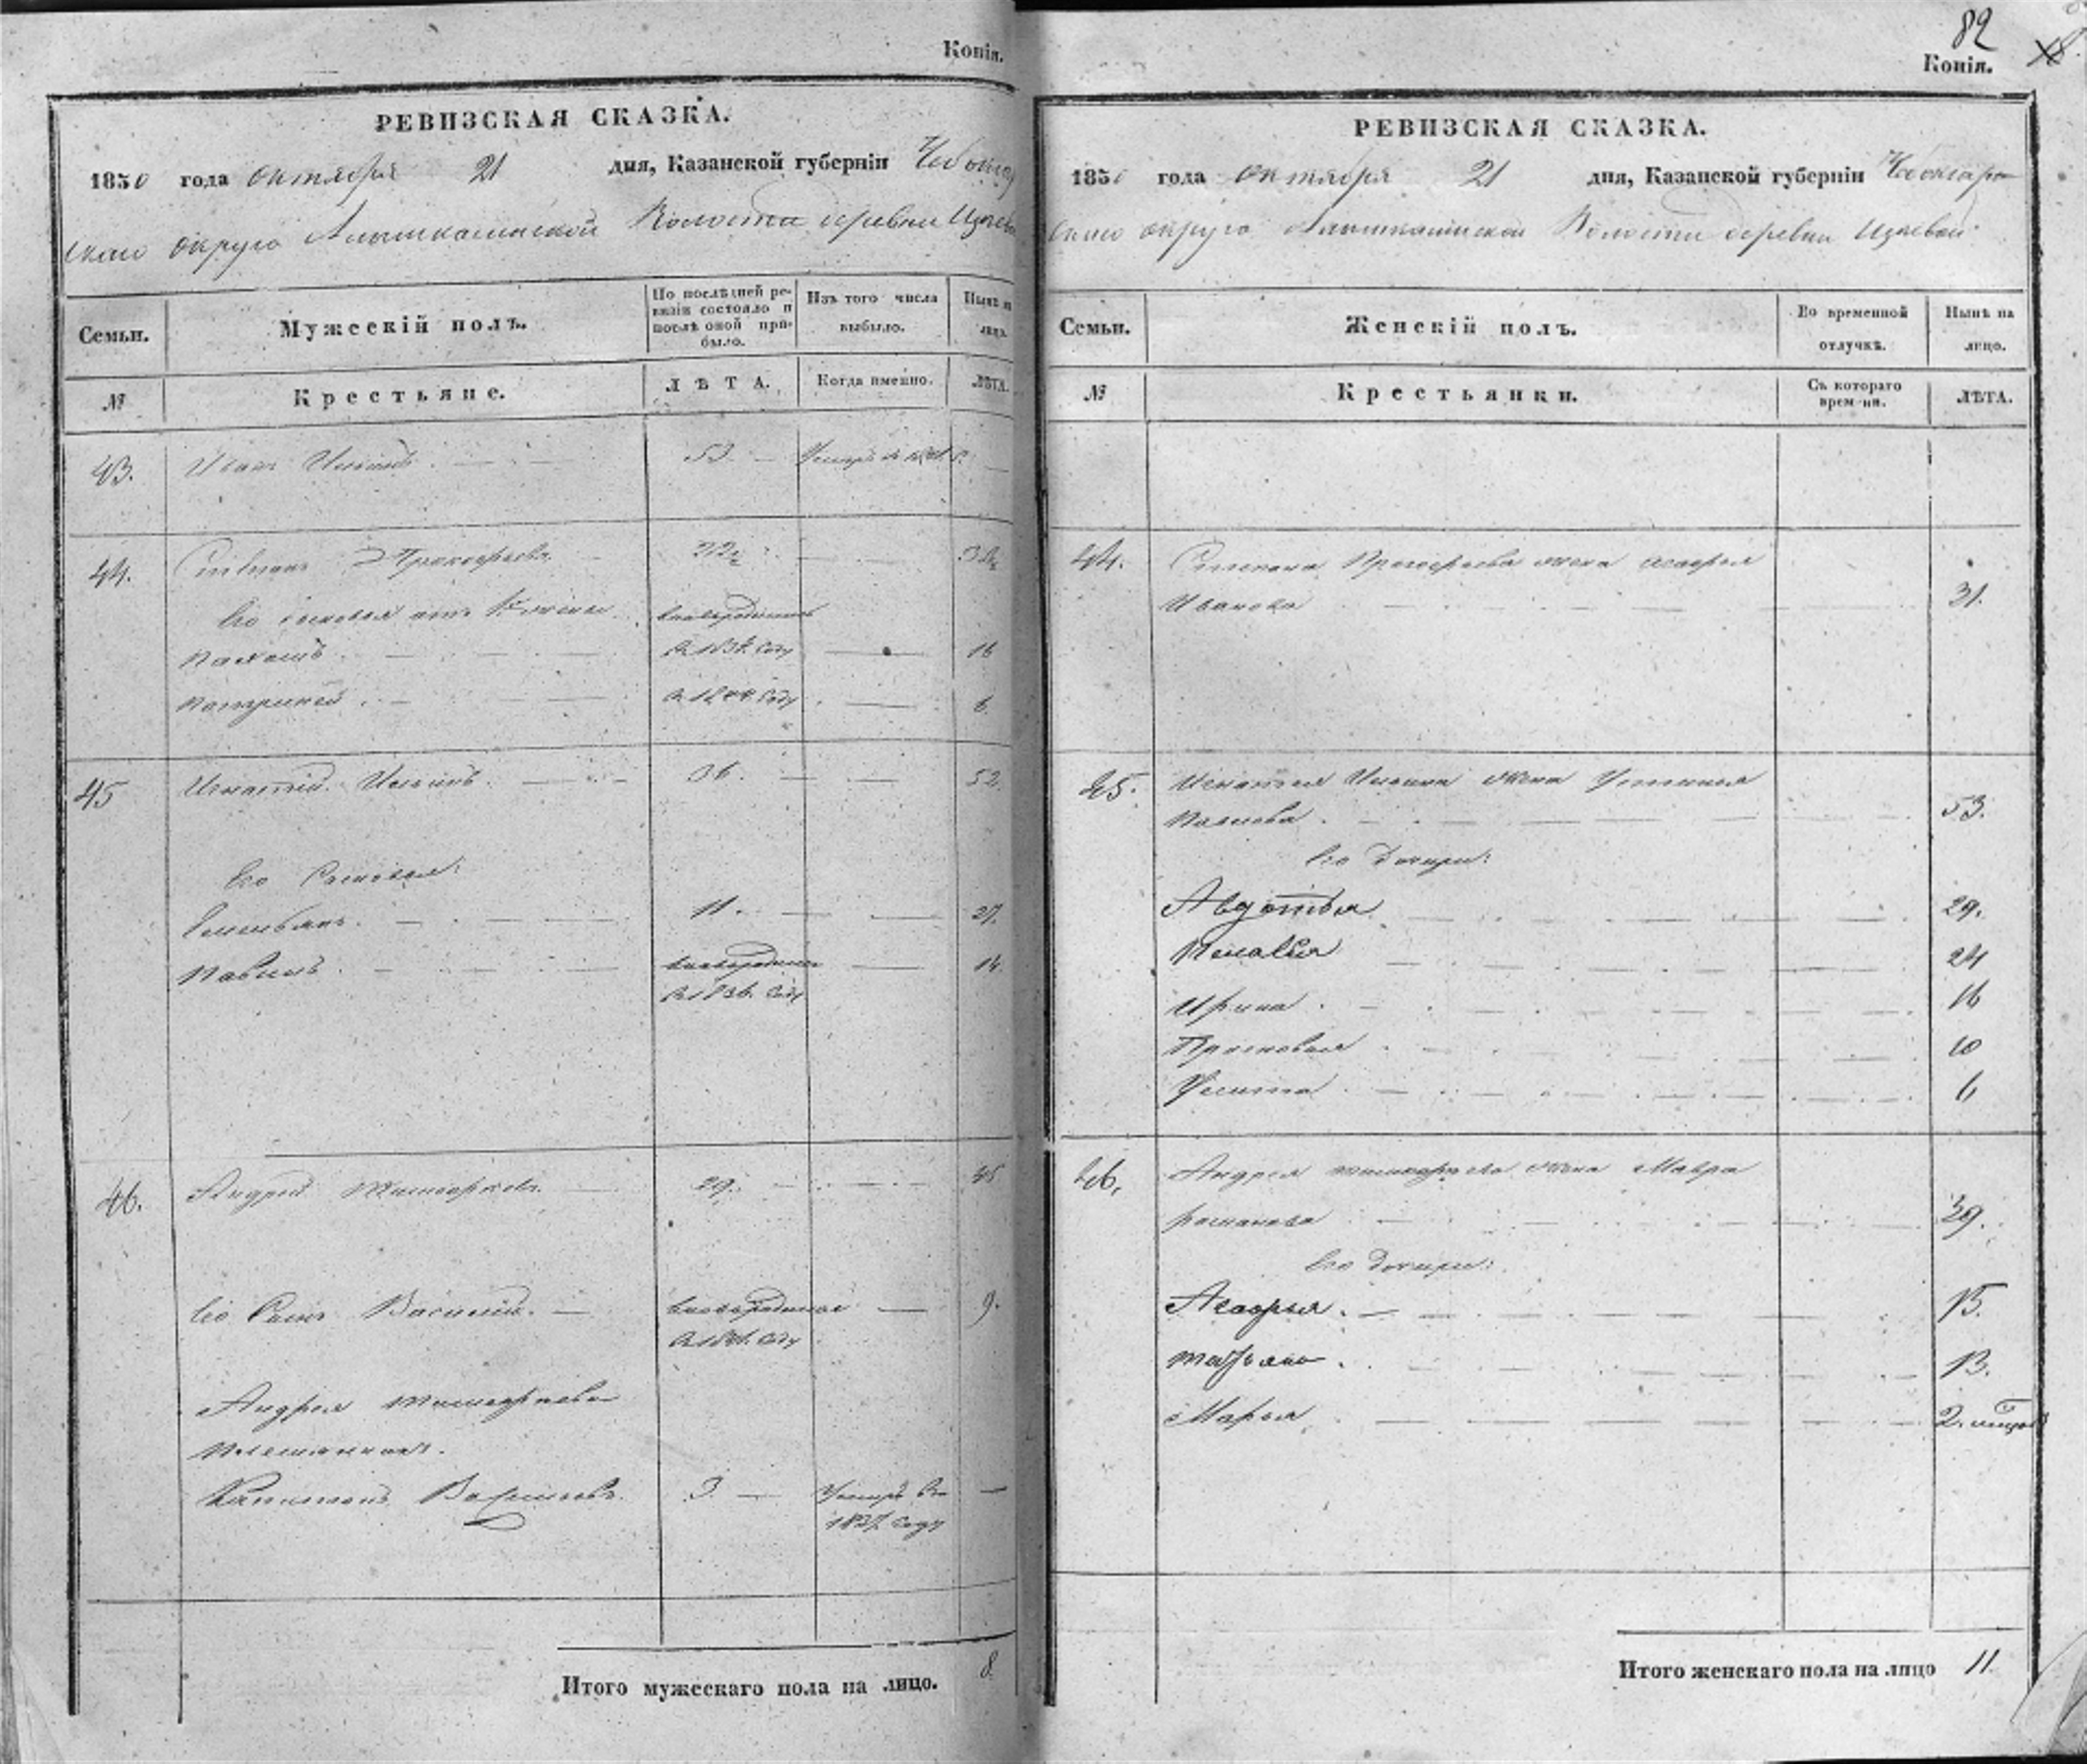 Копія.
РЕВИЗСКАЯ СКАЗКА.
1850 года октября 21 дня, Казанской губерніи Чебокса
скаго округа волости деревни
Семьи.
Мужескій полъ.
По послѣдней ре-
визіи состояло и
послѣ оной при-
было.
Изъ того числа
выбыло.
Нынѣ на
лицо.
№
Крестьяне.
ЛѢТА.
Когда именно.
ЛѢТА.
43.
Иванъ Ильинъ.
53.
Умеръ въ
44.
Степанъ Прокофьевъ
Его сыновья отъ 1й жены
новорожденный
Пахомъ
въ 1834. году
16
Патрикей
въ 1844 году
6.
45
Игнатій Ильинъ.
36.
52.
Его Сыновья:
11.
27.
Павелъ
новорожденный
въ 1836. году
14.
46.
Андрей
29.
45
Его Сынъ Василій.
новорожденный
въ 1841. году
9.
Андрея
племянникъ.
Васильевъ.
3.
Умеръ въ
1837. году
Итого мужескаго пола на лицо.
8.
82
Копія.
РЕВИЗСКАЯ СКАЗКА.
1850 года октября 21 дня, Казанской губерніи Чебоксар
скаго округа волости деревни
Семьи.
Женскій полъ.
Во временной
отлучкѣ.
Нынѣ на
лицо.
№
Крестьянки.
Съ котораго
времени.
ЛѢТА.
44.
Степана Прокофьева жена
Иванова
31.
45.
Игнатія Ильина жена Устинья
Павлова.
53.
Его дочери:
Авдотья
29.
Пелагея
24
Ирина.
16
Прасковья
10
Улита
6
46.
Андрея жена Мавра
Романова
39.
Его дочери:
15.
Татьяна.
13.
Марья
2.
Итого женскаго пола на лицо
11.